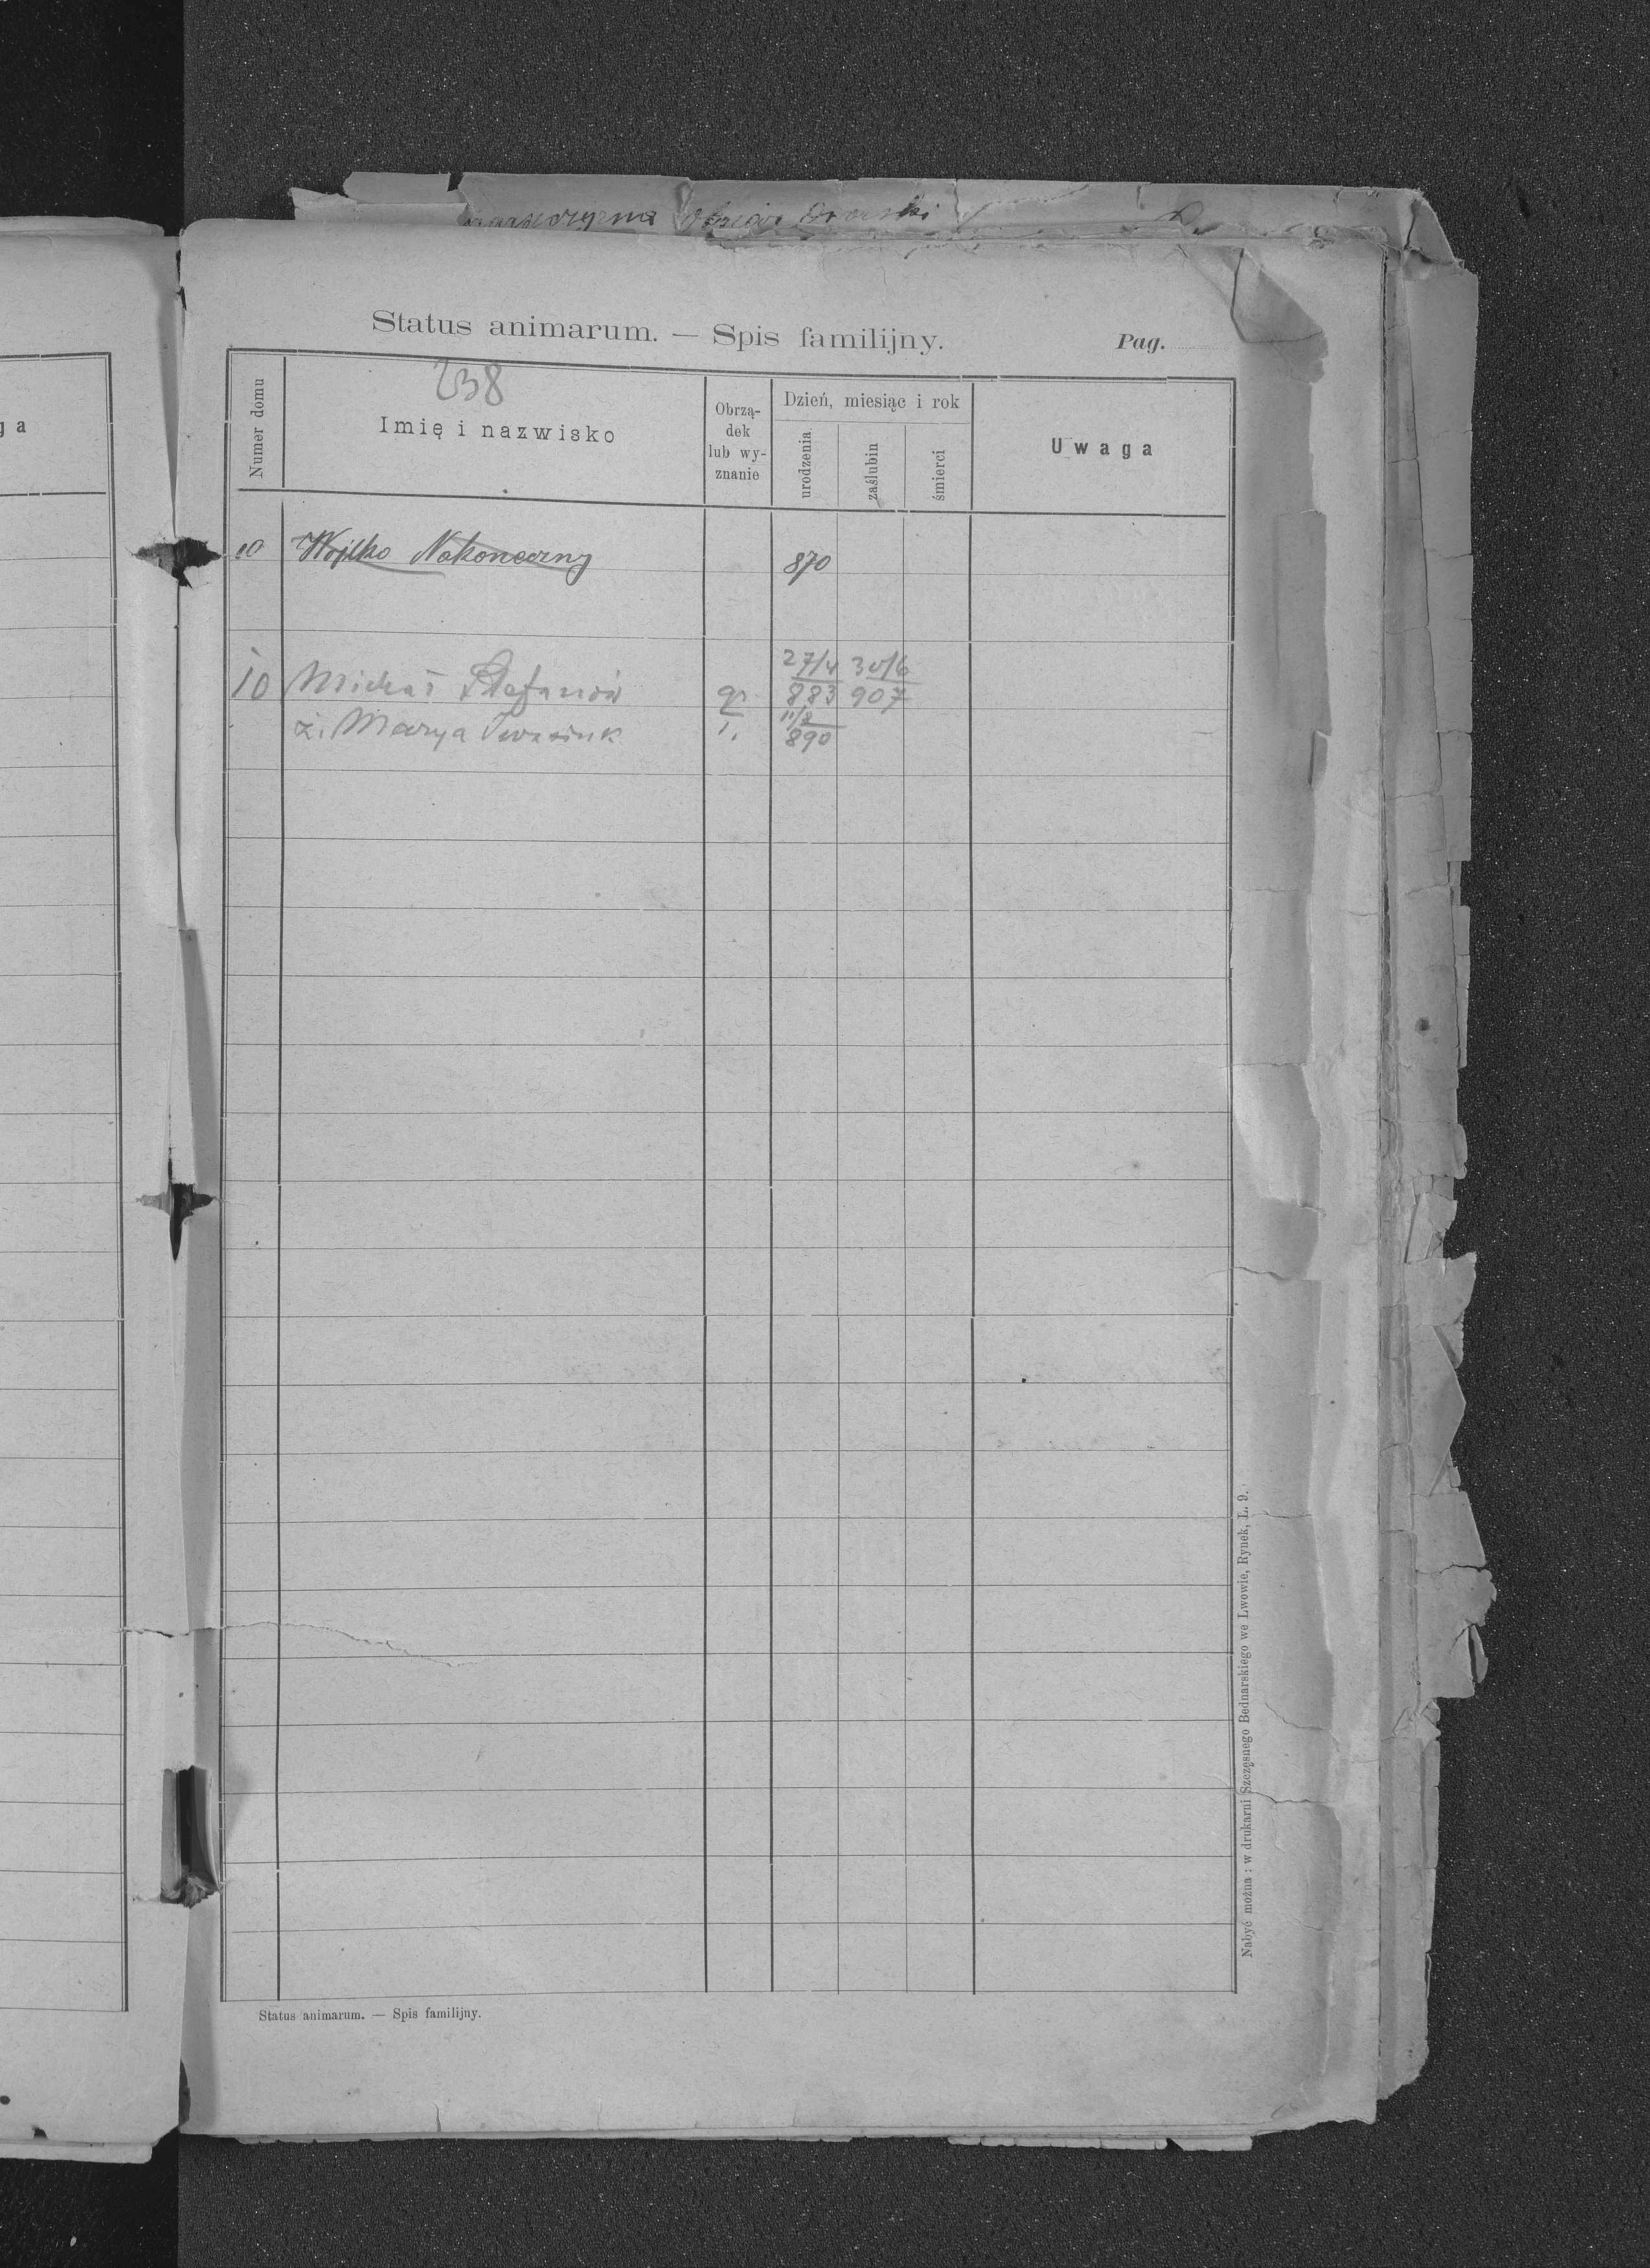 Status animarum. — Spis familijny.
Pag.
ga
238
Numer domu
Imię i nazwisko
Obrzą-
dek
lub wy-
znanie
Dzień, miesiąc i rok
urodzenia
zaślubin
śmierci
Uwaga
10 Wojtko Nakoneczny 870
27/4 30/6
10 Michał Stefanów gr 883 907
11/8
ż. Marya ł. 890
Nabyć można: w drukarni Szczęsnego Bednarskiego we Lwowie, Rynek, L. 9.
Status animarum. — Spis familijny.